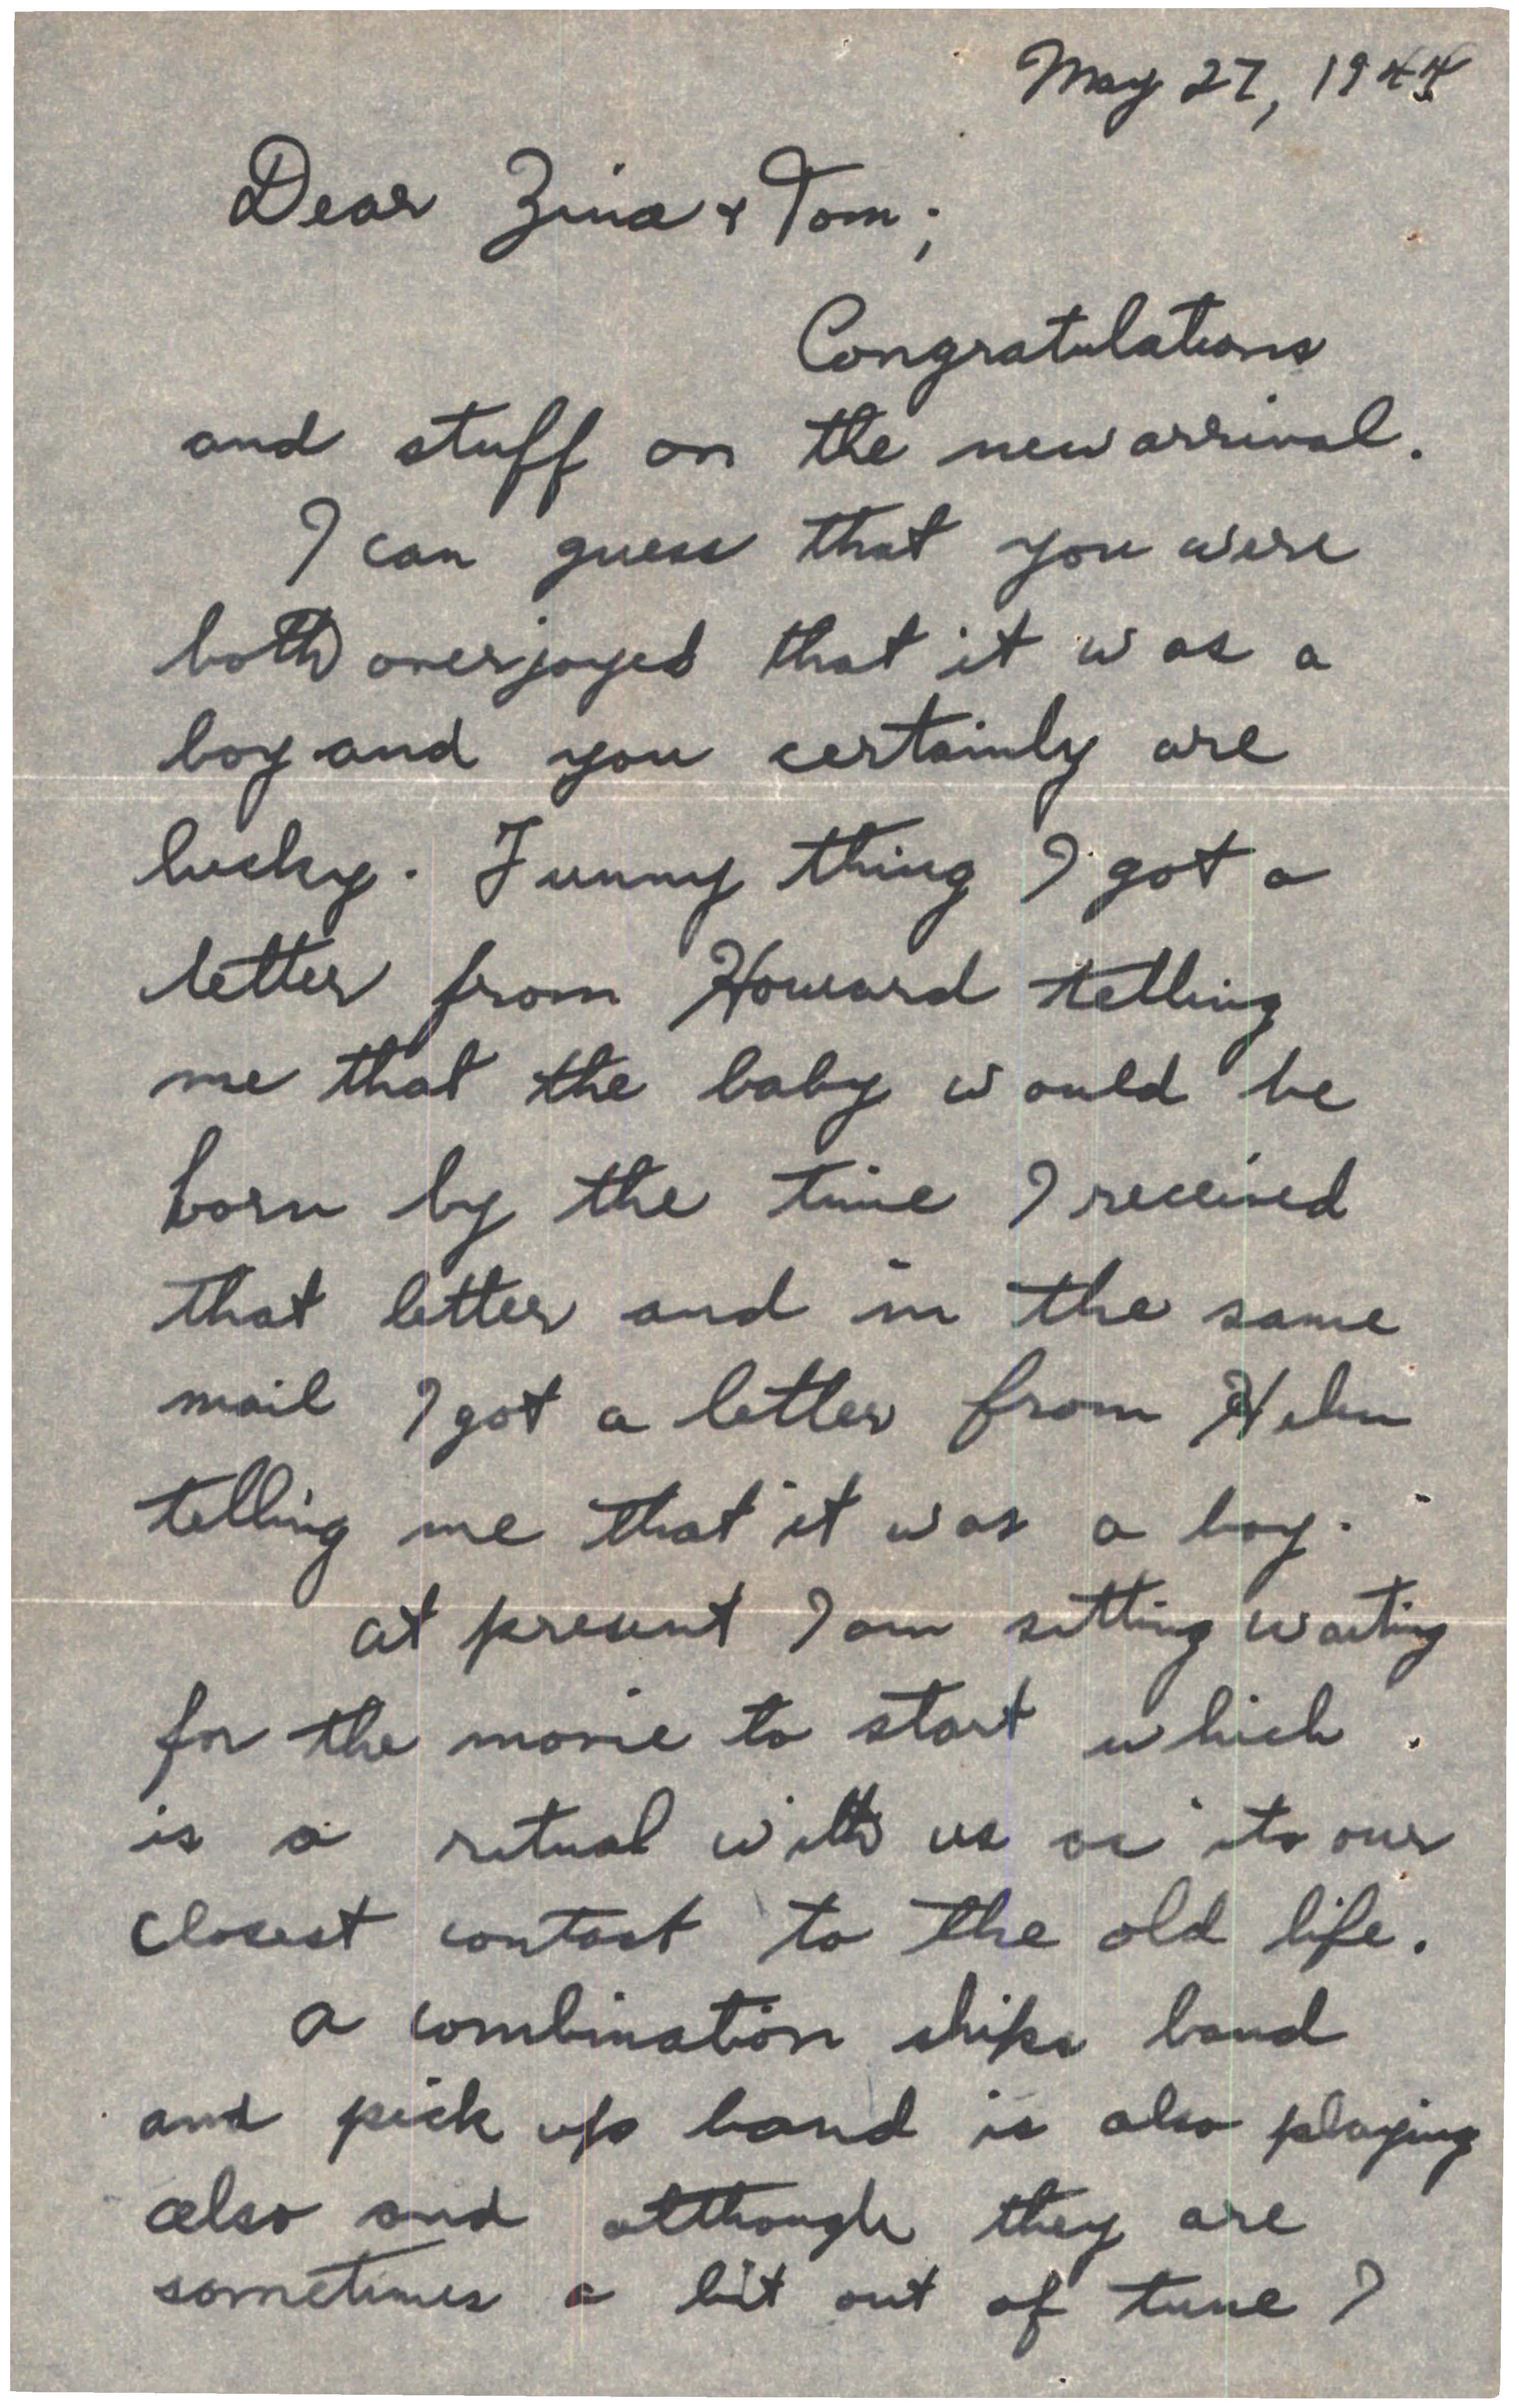 May 27, 1944
Dear Zina + Tom;
Congratulations
and stuff on the new arrival.
I can guess that you were
both overjoyed that it was a
boy and you certainly are
lucky. Funny thing I got a
letter from Howard telling
me that the baby would be
born by the time I received
that letter and in the same
mail I got a letter from Helen
telling me that it was a boy.
at present I am sitting waiting
for the movie to start which
is a ritual with us as its our
closest contact to the old life.
a combination ships band
and pick up band is also playing
also and although they are
sometimes a bit out of tune I